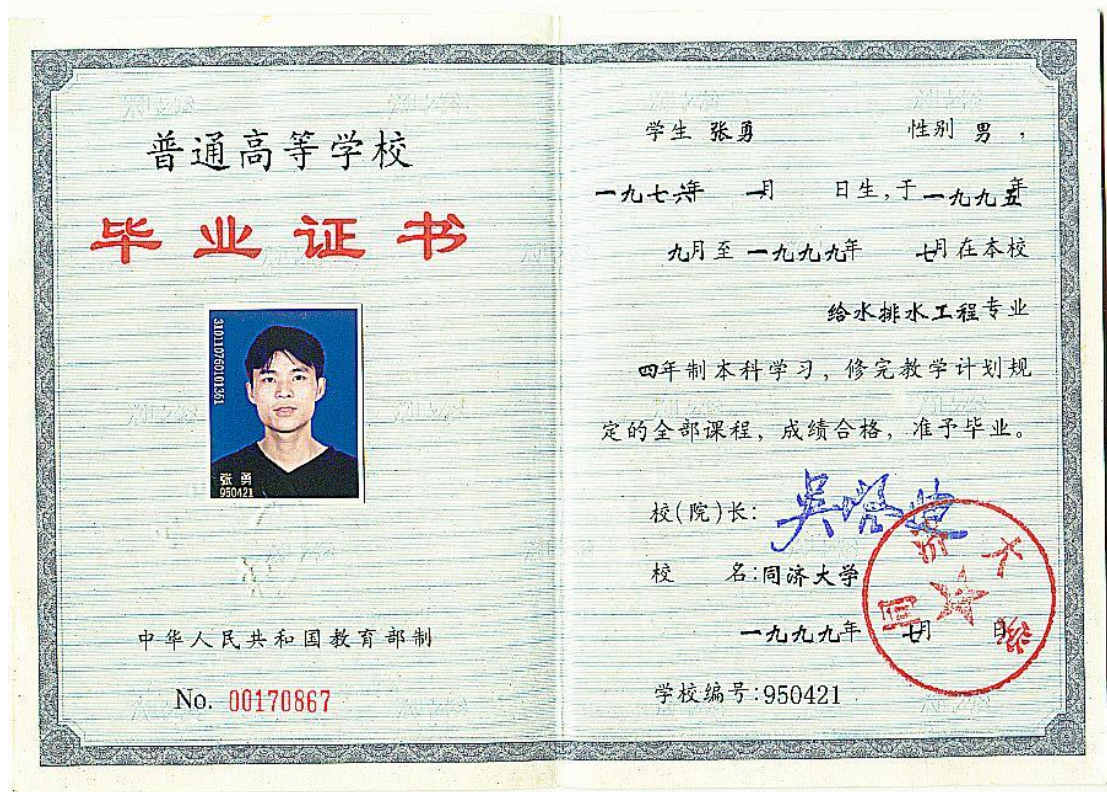 普通高等学校
毕业证书
310110760101361
张勇
950421
中华人民共和国教育部制
No. 00170867
学生 张勇 性别 男,
一九七六年 一月 日生,于一九九五年
九月至一九九九年 七月在本校
给水排水工程专业
四年制本科学习,修完教学计划规
定的全部课程,成绩合格,准予毕业。
校(院)长:
校 名:同济大学
一九九九年 七月 日
学校编号:950421
同济大学